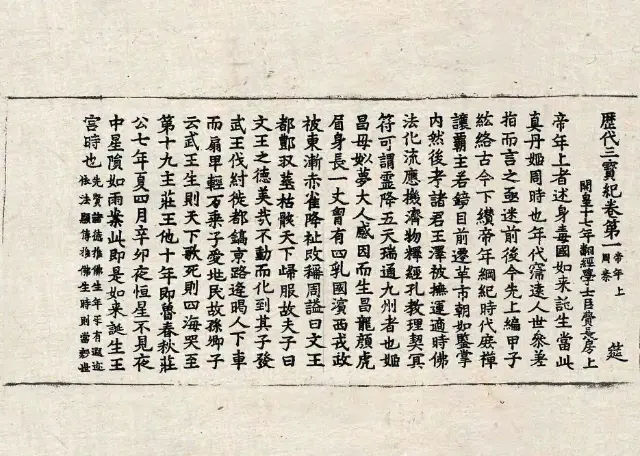 歷代三寶紀卷第一 帝年上 周秦 筵
開皇十七年翻經學士臣費長房上
帝年上者述身毒國如來誕生當此
真丹姬周時也年代窵遠人世叅差
指而言之亟迷前後今先上編甲子
絃絡古今下纘帝年綱紀時代庶禪
讓覇主若鏡目前遷革市朝如鑒掌
內然後考諸君王澤被撫運適時佛
法化流應機濟物釋經孔教理契冥
符可謂靈降五天瑞通九州者也姬
昌母姒夢大人感因而生昌龍顏虎
眉身長一丈胷有四乳國濱西戎政
被東漸赤雀降祉改稱周謚曰文王
都酆収葬枯骸天下歸服故夫子曰
文王之德美哉不動而化到其子發
武王伐紂徙都鎬京路逢暍人下車
而扇甲輕万乘子愛地民故孫卿子
云武王生則天下歌死則四海哭至
第十九主莊王他十年即魯春秋莊
公七年夏四月辛卯夜恒星不見夜
中星隕如雨案此即是如來誕生王
宮時也 先賢諸德推佛生年互有遐迩
依法顯傳推佛生時則當殷世